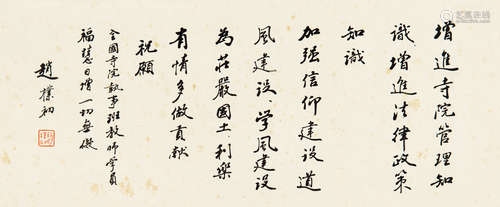 增進寺院管理知
識、增進法律政策
知識
加强信仰建設、道
風建設、學風建設
為莊嚴國土利樂
有情多做貢献
祝願
全國寺院執事班教師學員
福慧日增一切無礙
趙樸初